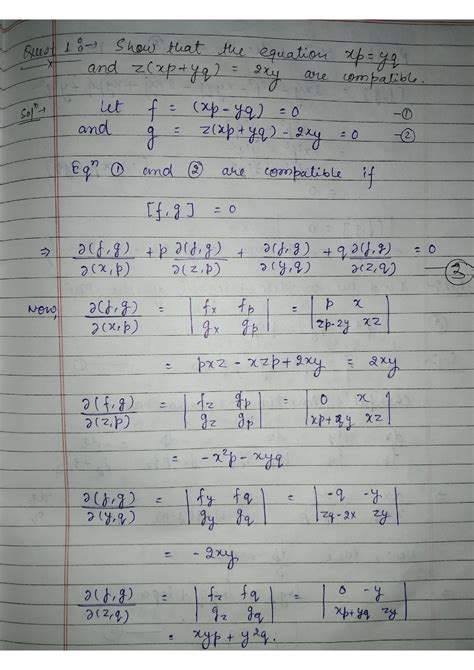 Ques 1 :→ Show that the equation xp = yq
and z(xp+yq) = 2xy are compatible.
Solⁿ→ Let f = (xp-yq) = 0 —①
and g = z(xp+yq) - 2xy = 0 —②
Eqⁿ ① and ② are compatible if
[f,g] = 0
⇒ ∂(f,g)/∂(x,p) + p ∂(f,g)/∂(z,p) + ∂(f,g)/∂(y,q) + q ∂(f,g)/∂(z,q) = 0 —②
Now, ∂(f,g)/∂(x,p) = | fx fp ; gx gp | = | p x ; zp-2y xz |
= pxz - xzp + 2xy = 2xy
∂(f,g)/∂(z,p) = | fz gp ; gz gp | = | 0 x ; xp+qy xz |
= -x²p - xyq
∂(f,g)/∂(y,q) = | fy fq ; gy gq | = | -q -y ; zq-2x zy |
= -2xy
∂(f,g)/∂(z,q) = | fz fq ; gz gq | = | 0 -y ; xp+yq zy |
= xyp + y²q.